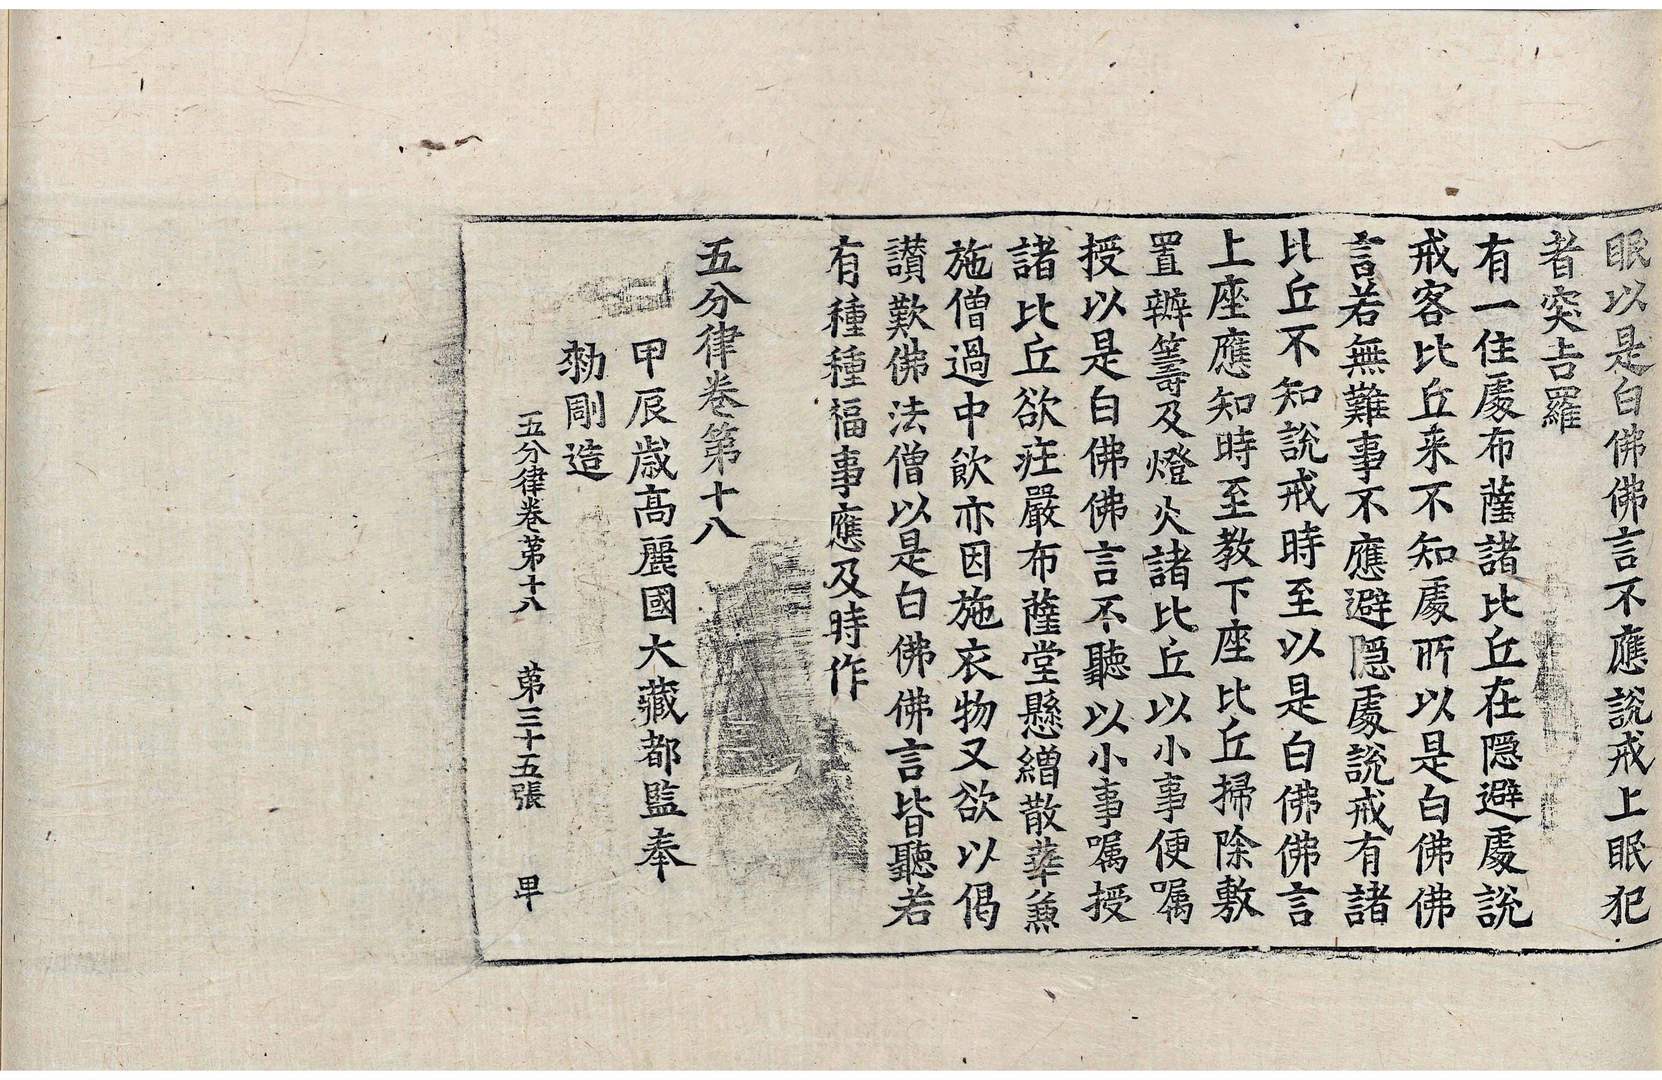 眠以是白佛佛言不應說戒上眠犯
者突吉羅
有一住處布薩諸比丘在隱避處說
戒客比丘来不知處所以是白佛佛
言若無難事不應避隱處說戒有諸
比丘不知說戒時至以是白佛佛言
上座應知時至教下座比丘掃除敷
置辦籌及燈火諸比丘以小事便囑
授以是白佛佛言不聽以小事囑授
諸比丘欲莊嚴布薩堂懸繒散華兼
施僧過中飲亦因施衣物又欲以偈
讃歎佛法僧以是白佛佛言皆聽若
有種種福事應及時作
五分律卷第十八
甲辰歲高麗國大藏都監奉
勑彫造
五分律卷第十八 第三十五張